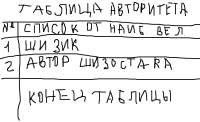 ТАБЛИЦА АВТОРИТЕТА
№ СПИСОК ОТ НАИБ ВЕЛ
1 ШИЗИК
2 АВТОР ШИЗОСТАRА
КОНЕЦ ТАБЛИЦЫ